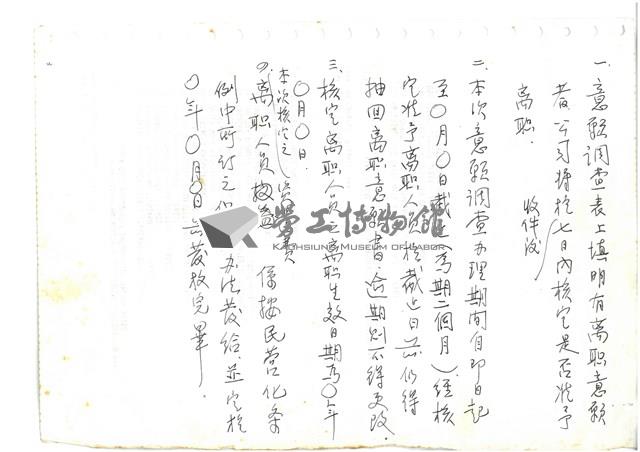 一、意願調查表上填明有离职意願
者公司將於七日內核定是否准予
收件後
离职.
二.本次意願調查办理期間自即日起
至〇月〇日截止(为期二個月)經核
定准予离职人員於截止日前仍得
抽回离职意願書,逾期則不得更改.
三、核定离职人員之离职生效日期为〇年
〇月〇日.
本次核定之
离职人員 係按民营化条
例中所订之 办法發给並定於
〇年〇月〇日前發放完畢.
勞工博物館
KAOHSIUNG MUSEUM OF LABOR